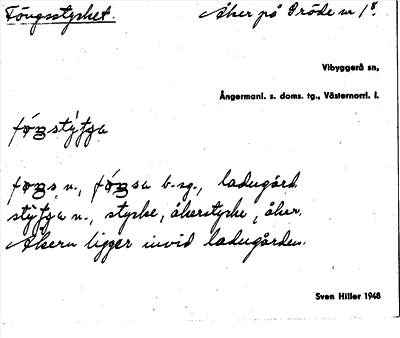 Föngsstycket. Åker på Gröde nr 1⁸.
Vibyggerå sn,
Ångermanl. s. doms. tg., Västernorrl. l.
n., b. sg., ladugård
n., stycke, åkerstycke, åker.
Åkern ligger invid ladugården.
Sven Hiller 1948